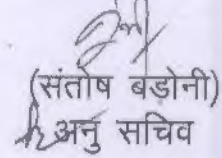 (संतोष बडोनी)
अनु सचिव